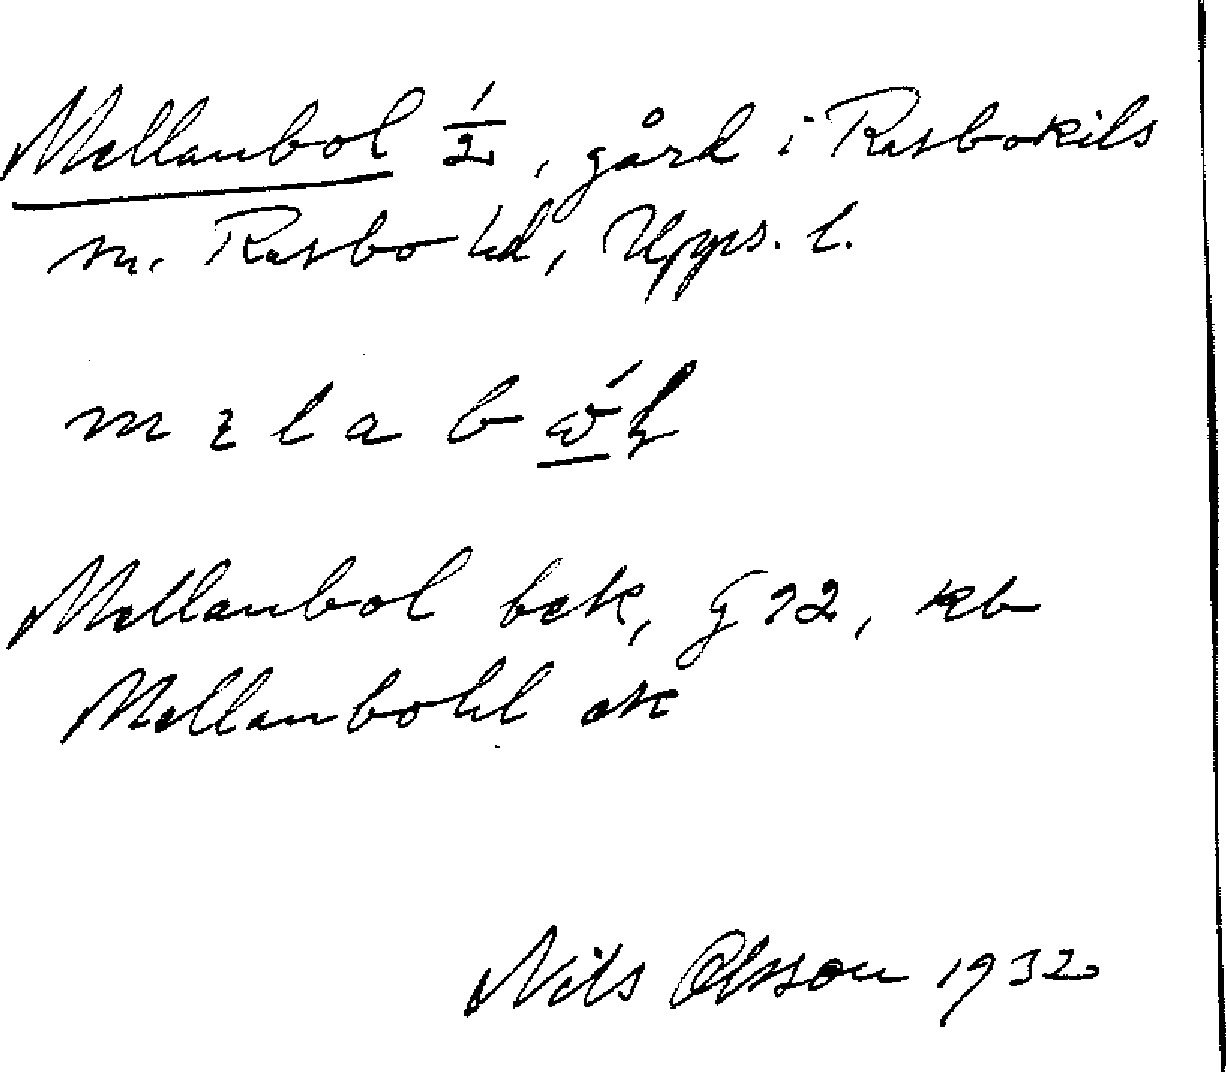 Mellanbol 1/2, gård i Rasbokils
sn. Rasbo hd, Upps. l.
Mellanbol bek, G 92, kb
Mellanbohl ek
Nils Olsson 1932